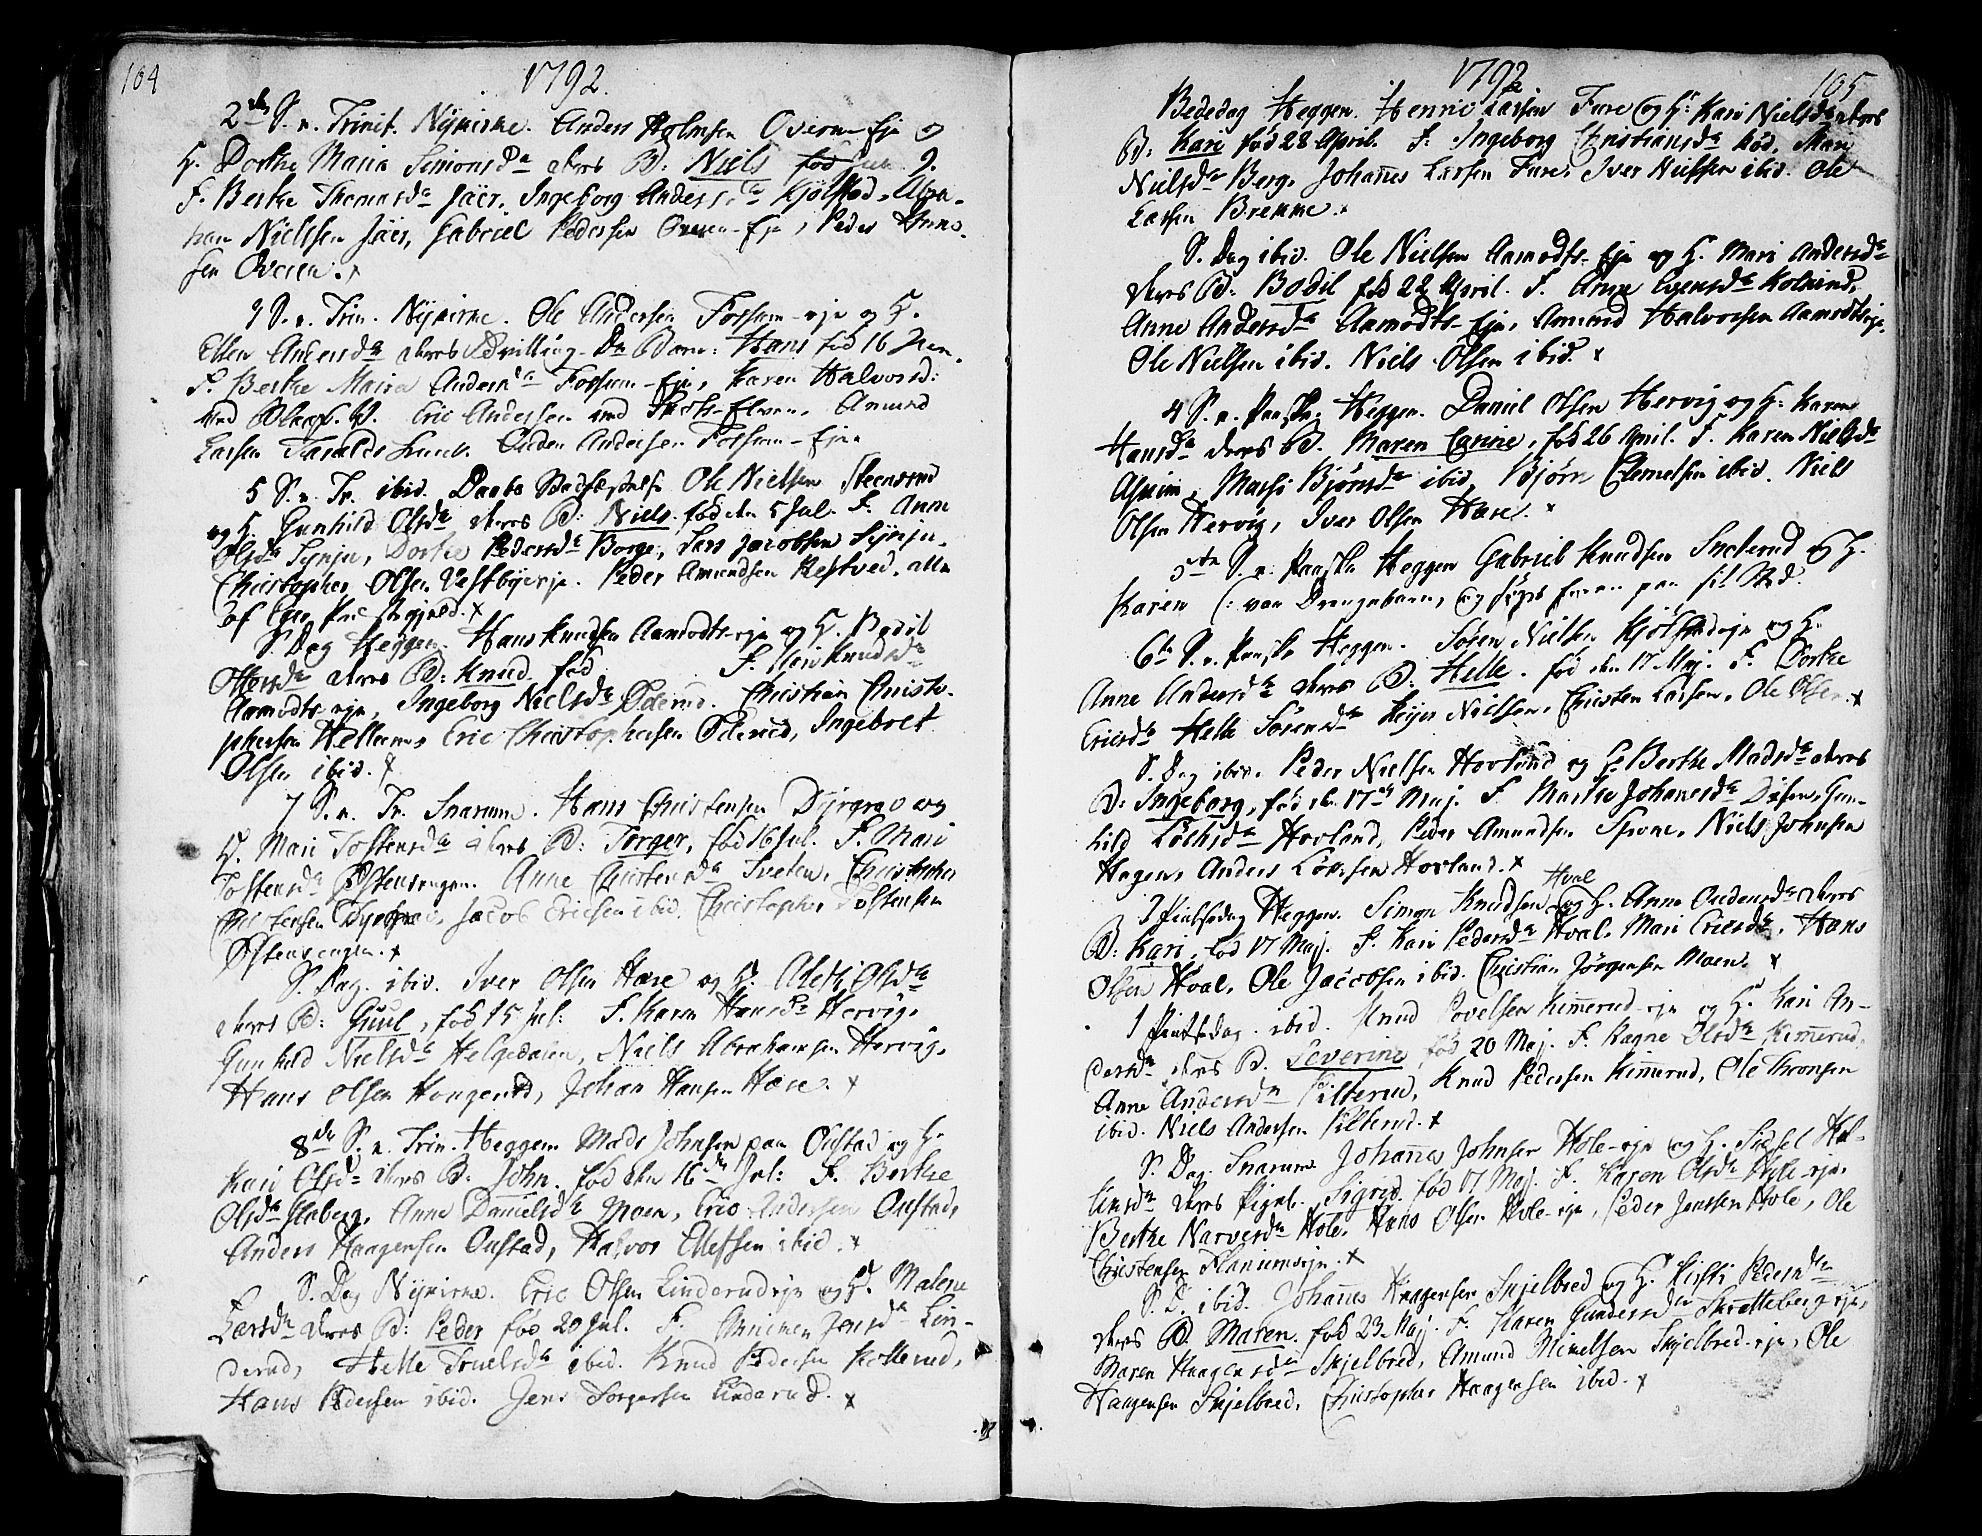 104
1792.
2den S. e. Trinit. Nykirke. Anders Holmsen Overn-Eje og
H. Dorthe Maria Simonsdr deres B. Niels fød Jun 9.
F. Berthe Thomasdr Jäer, Ingeborg Andersdr Kjølstad, Abra-
ham Nielssen Jäer, Gabriel Pedersen Overn-Eje, Peder
sen Overen.
3 S. e. Trin. Nykirke. Ole Andersen Fossum-eje og H.
Ellen Andersdr deres Tvilling- Barn: Hans fød 16 Jun.
F. Berthe Maria Andersdr Fossum-Eje, Karen Halvorsd:
ved Eric Andersen ved Elven, Amund
Larsen Taralds Andersen Fossum-Eje.
5 S. e. Tr. ibid. Daabs Stadfæstelse Ole Nielsen Steensrud
og H. Gunhild Olsdr deres B: Niels fød den 5 Jul. F. Anne
Olsdr Synju, Dorthe Pedersdr Borge, Lars Jacobsen Synju.
Christopher Olsen Vestbyeeje. Peder Amundsen Kestved. alle
af Eger Præstegjeld.
S. Dag Heggen. Hans Knudsen Aamodts-eje og H. Bodil
Ottersdr deres B: Knud. fød F. Knudsdr
Aamodts-eje, Ingeborg Nielsdr Øderud. Christian Christo-
phersen Hellum, Eric Christophersen Øderud, Ingebret
Olsen ibid.
7 S. e. Tr. Snarum. Hans Christensen Dyrgrav og
H. Mari Tostensdr deres B: Torger, fød 16 Jul. F. Mari
Tostensdr Østensengen. Anne Christensdr Tveten, Christopher
Christensen Dyrgrav, Jacob Ericsen ibid. Christopher Tostensen
Østensengen.
S. Dag. ibid. Iver Olsen Hare og H. Olsdr
deres B: Guul, fød 15 Jul: F. Karen Hansdr Hervig,
Gunhild Nielsdr Helgedalen, Niels Abrahamsen Hervig,
Hans Olsen Hougerud, Johan Hansen Hare.
8de S. e. Trin. Heggen. Mads Johnsen paa Oustad og H.
Kari Olsdr deres B. John. fød den 16de Jul: F. Berthe
Olsdr Slaberg, Anne Danielsdr Moen, Eric Andersen Oustad,
Anders Haagensen Oustad, Halvor Ellefsen ibid.
S. Dag Nykirke. Eric Olsen Linderudeje og H. Malene
Larsdr deres B: Peder fød 20 Jul. F. Jensdr Lin-
derud, Helle Truelsdr ibid. Knud Pedersen Kollerud,
Hans Pedersen ibid. Jens Torgersen Linderud.
1792
105
Bededag Heggen. Larsen Fure og H: Kari Nielsdr deres
B. Kari fød 28 April. F. Ingeborg Christiansdr Kød, Mari
Nielsdr Berg, Johanes Larsen Fure, Iver Nielssen ibid. Ole
Larsen Brekke.
S. Dag ibid. Ole Nielsen Aamodts-Eje og H. Mari Andersdr
deres B: Bodil fød 22 April. F. Anne Evensdr Kolkind,
Anne Andersdr Aamodts-Eje, Amund Halvorsen Aamodtseje.
Ole Nielsen ibid. Niels Olsen ibid.
4 S. e. Paaske Heggen. Daniel Olsen Hervig og H. Karen
Hansdr deres B. Maren Carine, fød 26 April. F. Karen Nielsdr
Askim, Marthe Bjørnsdr ibid, Bjørn Clemetsen ibid. Niels
Olsen Hervig, Iver Olsen Hare.
5te S. e. Paaske Heggen Gabriel Knudsen Sneterud og H.
Karen (: paa sit Sted.
6te S. e. Paaske Heggen. Søren Nielsen Kjølstadeje og H.
Anne Andersdr deres B. Helle. fød den 17 Maj. F. Dorthe
Ericsdr Helle Sørensdr Nielsen, Christen Larsen, Ole Olsen.
S. Dag ibid. Peder Nielsen Hovland og H. Berthe Madsdr deres
B: Ingeborg, fød den 17de Maj. F. Marthe Johanesdr Disen, Gun-
hild Hovland, Peder Amundsen Niels Johnsen
Hagen, Anders Hovland.
1 Pintsedag Heggen. Simon Knudsen Hval og H. Anne Audensdr deres
B: Kari, fød 17 Maj. F. Kari Pedersdr Hval, Mari Ericsdr, Hans
Olsen Hval, Ole Jacobsen ibid. Christian Jørgensen Moen.
1 Pintsdag. ibid. Knud Povelsen Kimerud-eje og H. Kari An-
dersdr deres B. Severine, fød 20 Maj. F. Ragne Olsdr Kimerud,
Anne Andersdr Pilterud, Knud Pedersen Kimerud, Ole Thronsen
ibid. Niels Andersen Pilterud.
S. Dag. Snarum. Johanes Johnsen Hole-eje og H. Sidsel Hal-
dr deres Pigeb. Sigrid. fød 17 Maj. F. Karen Olsdr Hole-eje,
Berthe Narvesdr Hole, Hans Olsen Hole-eje, Peder Jenssen Hole, Ole
Christensen
S. D. ibid. Johanes Haagensen Skjelbred og H. Kirsti Pedersdr
deres B. Maren. fød 23 Maj. F. Karen Gundersdr Skrettebergeje,
Maren Haagensdr Skjelbred, Amund Mikelsen Skjelbred-eje, Ole
Haagensen Skjelbred, Christopher Haagensen ibid.